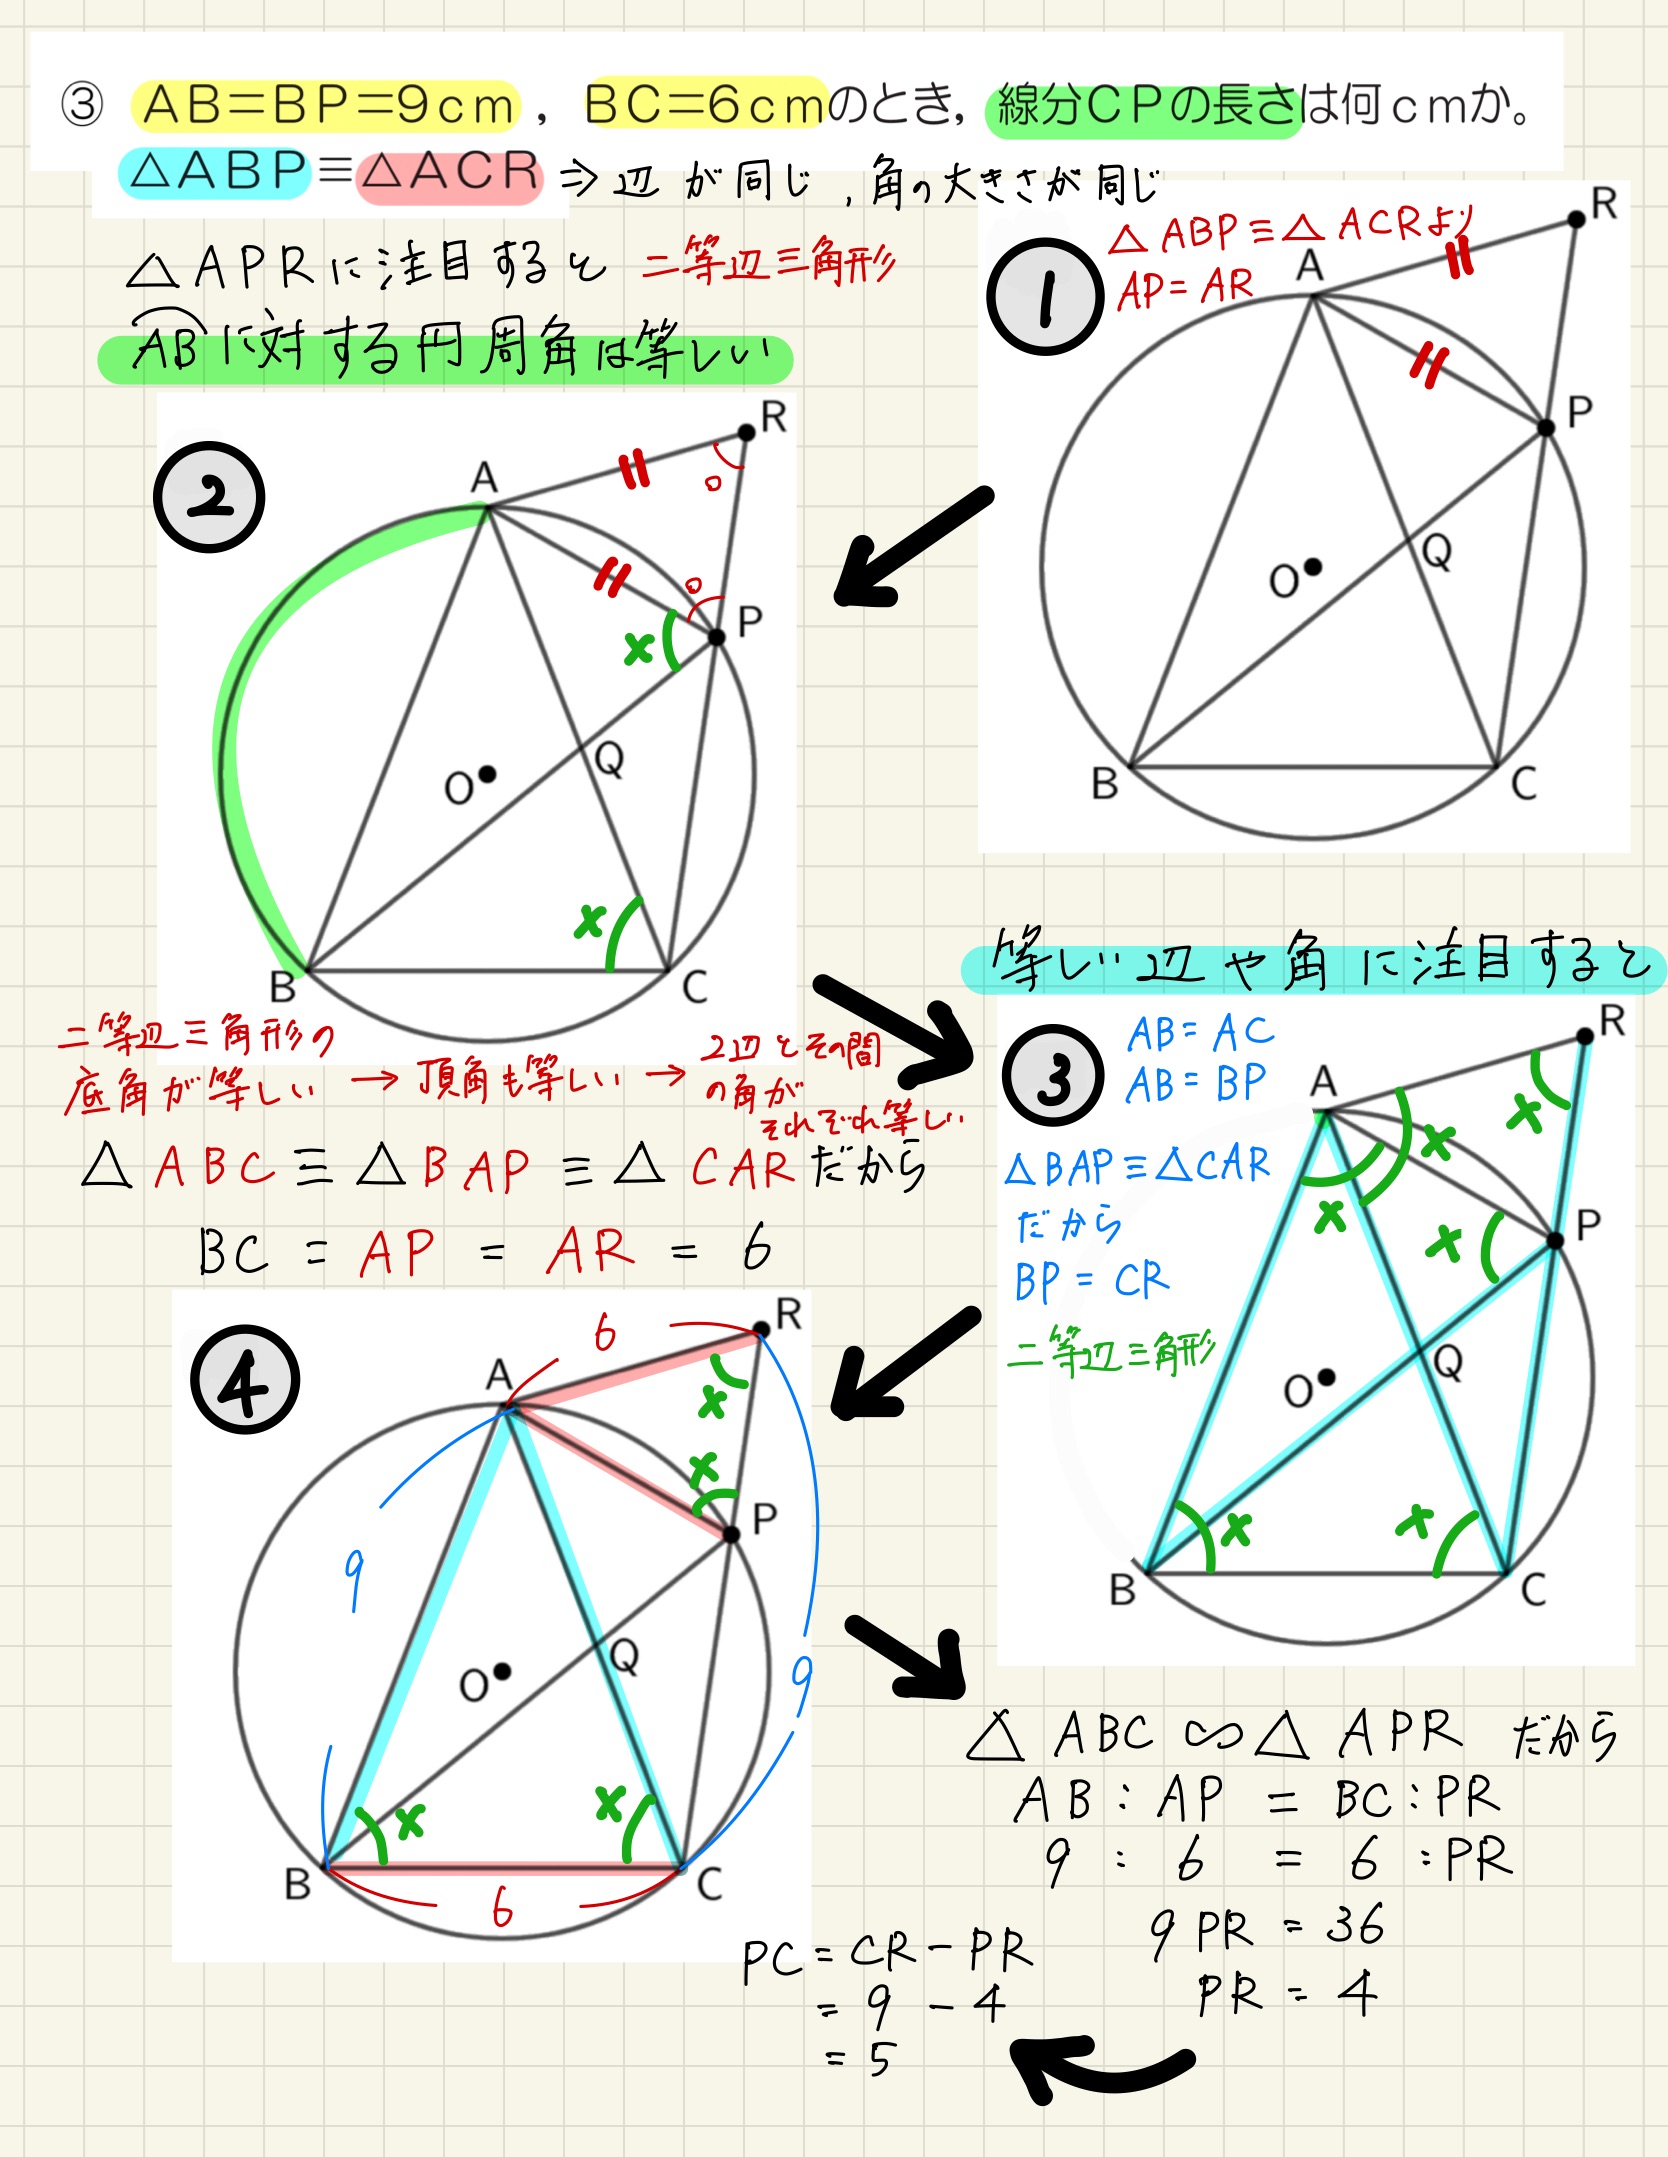 ③ AB=BP=9cm, BC=6cmのとき, 線分CPの長さは何cmか。
△ABP≡△ACR ⇒辺が同じ, 角の大きさが同じ
△APRに注目すると 二等辺三角形
ABに対する円周角は等しい
1
△ABP≡△ACRより
AP=AR
R
A
P
Q
O
B
C
2
R
A
○
○
P
×
Q
O
×
B
C
二等辺三角形の
底角が等しい → 頂角も等しい → 2辺とその間
の角が
それぞれ等しい
△ABC≡△BAP≡△CARだから
BC = AP = AR = 6
等しい辺や角に注目すると
3
AB=AC
AB=BP
△BAP≡△CAR
だから
BP=CR
二等辺三角形
R
A
×
×
×
×
P
Q
O
×
×
B
C
4
6
R
A
×
×
P
9
Q
O
9
×
×
B
C
6
△ABC∽△APR だから
AB:AP = BC:PR
9:6 = 6:PR
9PR = 36
PR = 4
PC = CR - PR
= 9 - 4
= 5